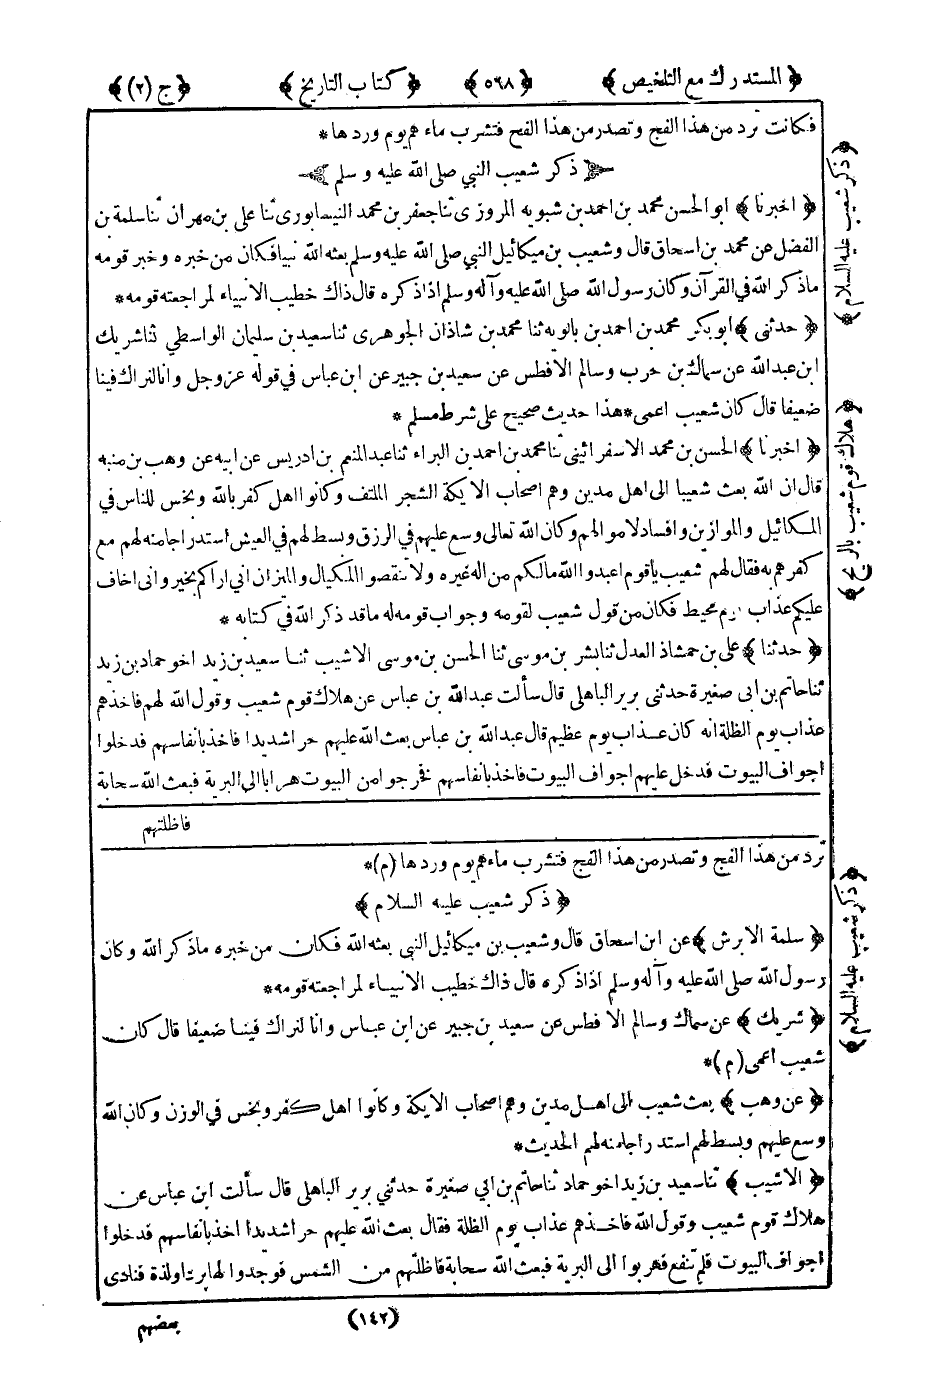 ﴿ المستدرك مع التلخيص ﴾ ﴿ ٥٦٨ ﴾ ﴿ كتاب التاريخ ﴾ ﴿ ج (٢) ﴾
فكانت ترد من هذا الفج وتصدر من هذا الفج فتشرب ماءهم يوم وردها *
ذكر شعيب النبي صلى الله عليه وسلم
﴿ اخبرنا ﴾ ابو الحسن محمد بن احمد بن شبويه المروزى ثنا جعفر بن محمد النيسابورى ثنا على بن مهران ثنا سلمة بن
الفضل عن محمد بن اسحاق قال وشعيب بن ميكائيل النبي صلى الله عليه وسلم بعثه الله نبيا فكان من خبره وخبر قومه
ماذكر الله في القرآن وكان رسول الله صلى الله عليه وآله وسلم اذا ذكره قال ذاك خطيب الانبياء لمراجعته قومه *
﴿ حدثنى ﴾ ابوبكر محمد بن احمد بن بالويه ثنا محمد بن شاذان الجوهرى ثنا سعيد بن سليمان الواسطي ثنا شريك
ابن عبد الله عن سماك بن حرب وسالم الافطس عن سعيد بن جبير عن ابن عباس في قوله عزوجل وانا لنراك فينا
ضعيفا قال كان شعيب اعمى * هذا حديث صحيح على شرط مسلم *
﴿ اخبرنا ﴾ الحسن بن محمد الاسفرائيني ثنا محمد بن احمد بن البراء ثنا عبد المنعم بن ادريس عن ابيه عن وهب بن منبه
قال ان الله بعث شعيبا الى اهل مدين وهم اصحاب الايكة الشجر الملتف وكانوا اهل كفر بالله وبخس للناس في
المكائيل والموازين وافساد لاموالهم وكان الله تعالى وسع عليهم في الرزق وبسط لهم في العيش استدراجا منه لهم مع
كفرهم به فقال لهم شعيب ياقوم اعبدوا الله مالكم من اله غيره ولا تنقصوا المكيال والميزان اني اراكم بخير وانى اخاف
عليكم عذاب يوم محيط فكان من قول شعيب لقومه وجواب قومه له ماقد ذكر الله في كتابه *
﴿ حدثنا ﴾ على بن حمشاذ العدل ثنا بشر بن موسى ثنا الحسن بن موسى الاشيب ثنا سعيد بن زيد اخو حماد بن زيد
ثنا حاتم بن ابى صغيرة حدثنى برير الباهلى قال سألت عبد الله بن عباس عن هلاك قوم شعيب وقول الله لهم فاخذهم
عذاب يوم الظلة انه كان عذاب يوم عظيم قال عبد الله بن عباس بعث الله عليهم حرا شديدا فاخذ بانفاسهم فدخلوا
اجواف البيوت فدخل عليهم اجواف البيوت فاخذ بانفاسهم فخرجوا من البيوت هرابا الى البرية فبعث الله سحابة
فاظلتهم
ترد من هذا الفج وتصدر من هذا الفج فتشرب ماءهم يوم وردها (م) *
﴿ ذكر شعيب عليه السلام ﴾
﴿ سلمة الابرش ﴾ عن ابن اسحاق قال وشعيب بن ميكائيل النبي بعثه الله فكان من خبره ماذكر الله وكان
رسول الله صلى الله عليه وآله وسلم اذا ذكره قال ذاك خطيب الانبياء لمراجعته قومه *
﴿ شريك ﴾ عن سماك وسالم الافطس عن سعيد بن جبير عن ابن عباس وانا لنراك فينا ضعيفا قال كان
شعيب اعمى (م) *
﴿ عن وهب ﴾ بعث شعيب الى اهل مدين وهم اصحاب الايكة وكانوا اهل كفر وبخس في الوزن وكان الله
وسع عليهم وبسط لهم استدراجا منه لهم الحديث *
﴿ الاشيب ﴾ ثنا سعيد بن زيد اخو حماد ثنا حاتم بن ابي صغيرة حدثني برير الباهلى قال سألت ابن عباس عن
هلاك قوم شعيب وقول الله فاخذهم عذاب يوم الظلة فقال بعث الله عليهم حرا شديدا اخذ بانفاسهم فدخلوا
اجواف البيوت فلم تنفع فهربوا الى البرية فبعث الله سحابة فاظلتهم من الشمس فوجدوا لها بردا ولذة فنادى
(١٤٢)
بعضهم
﴿ ذكر شعيب عليه السلام ﴾
﴿ هلاك قوم شعيب بالريح ﴾
﴿ ذكر شعيب عليه السلام ﴾